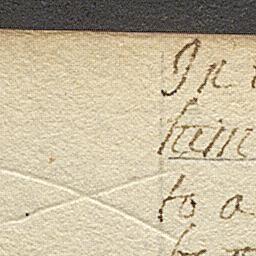 In
him
to a